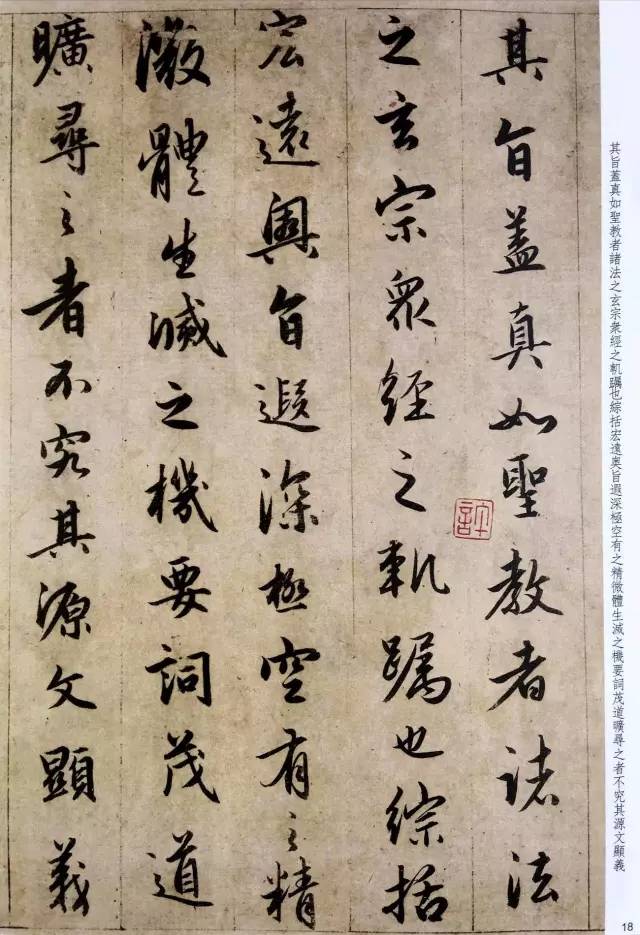 其旨蓋真如聖教者諸法
之玄宗衆經之軌躅也綜括
宏遠奧旨遐深極空有之精
微體生滅之機要詞茂道
曠尋之者不究其源文顯義
許
其旨蓋真如聖教者諸法之玄宗衆經之軌躅也綜括宏遠奥旨遐深極空有之精微體生滅之機要詞茂道曠尋之者不究其源文顯義
18